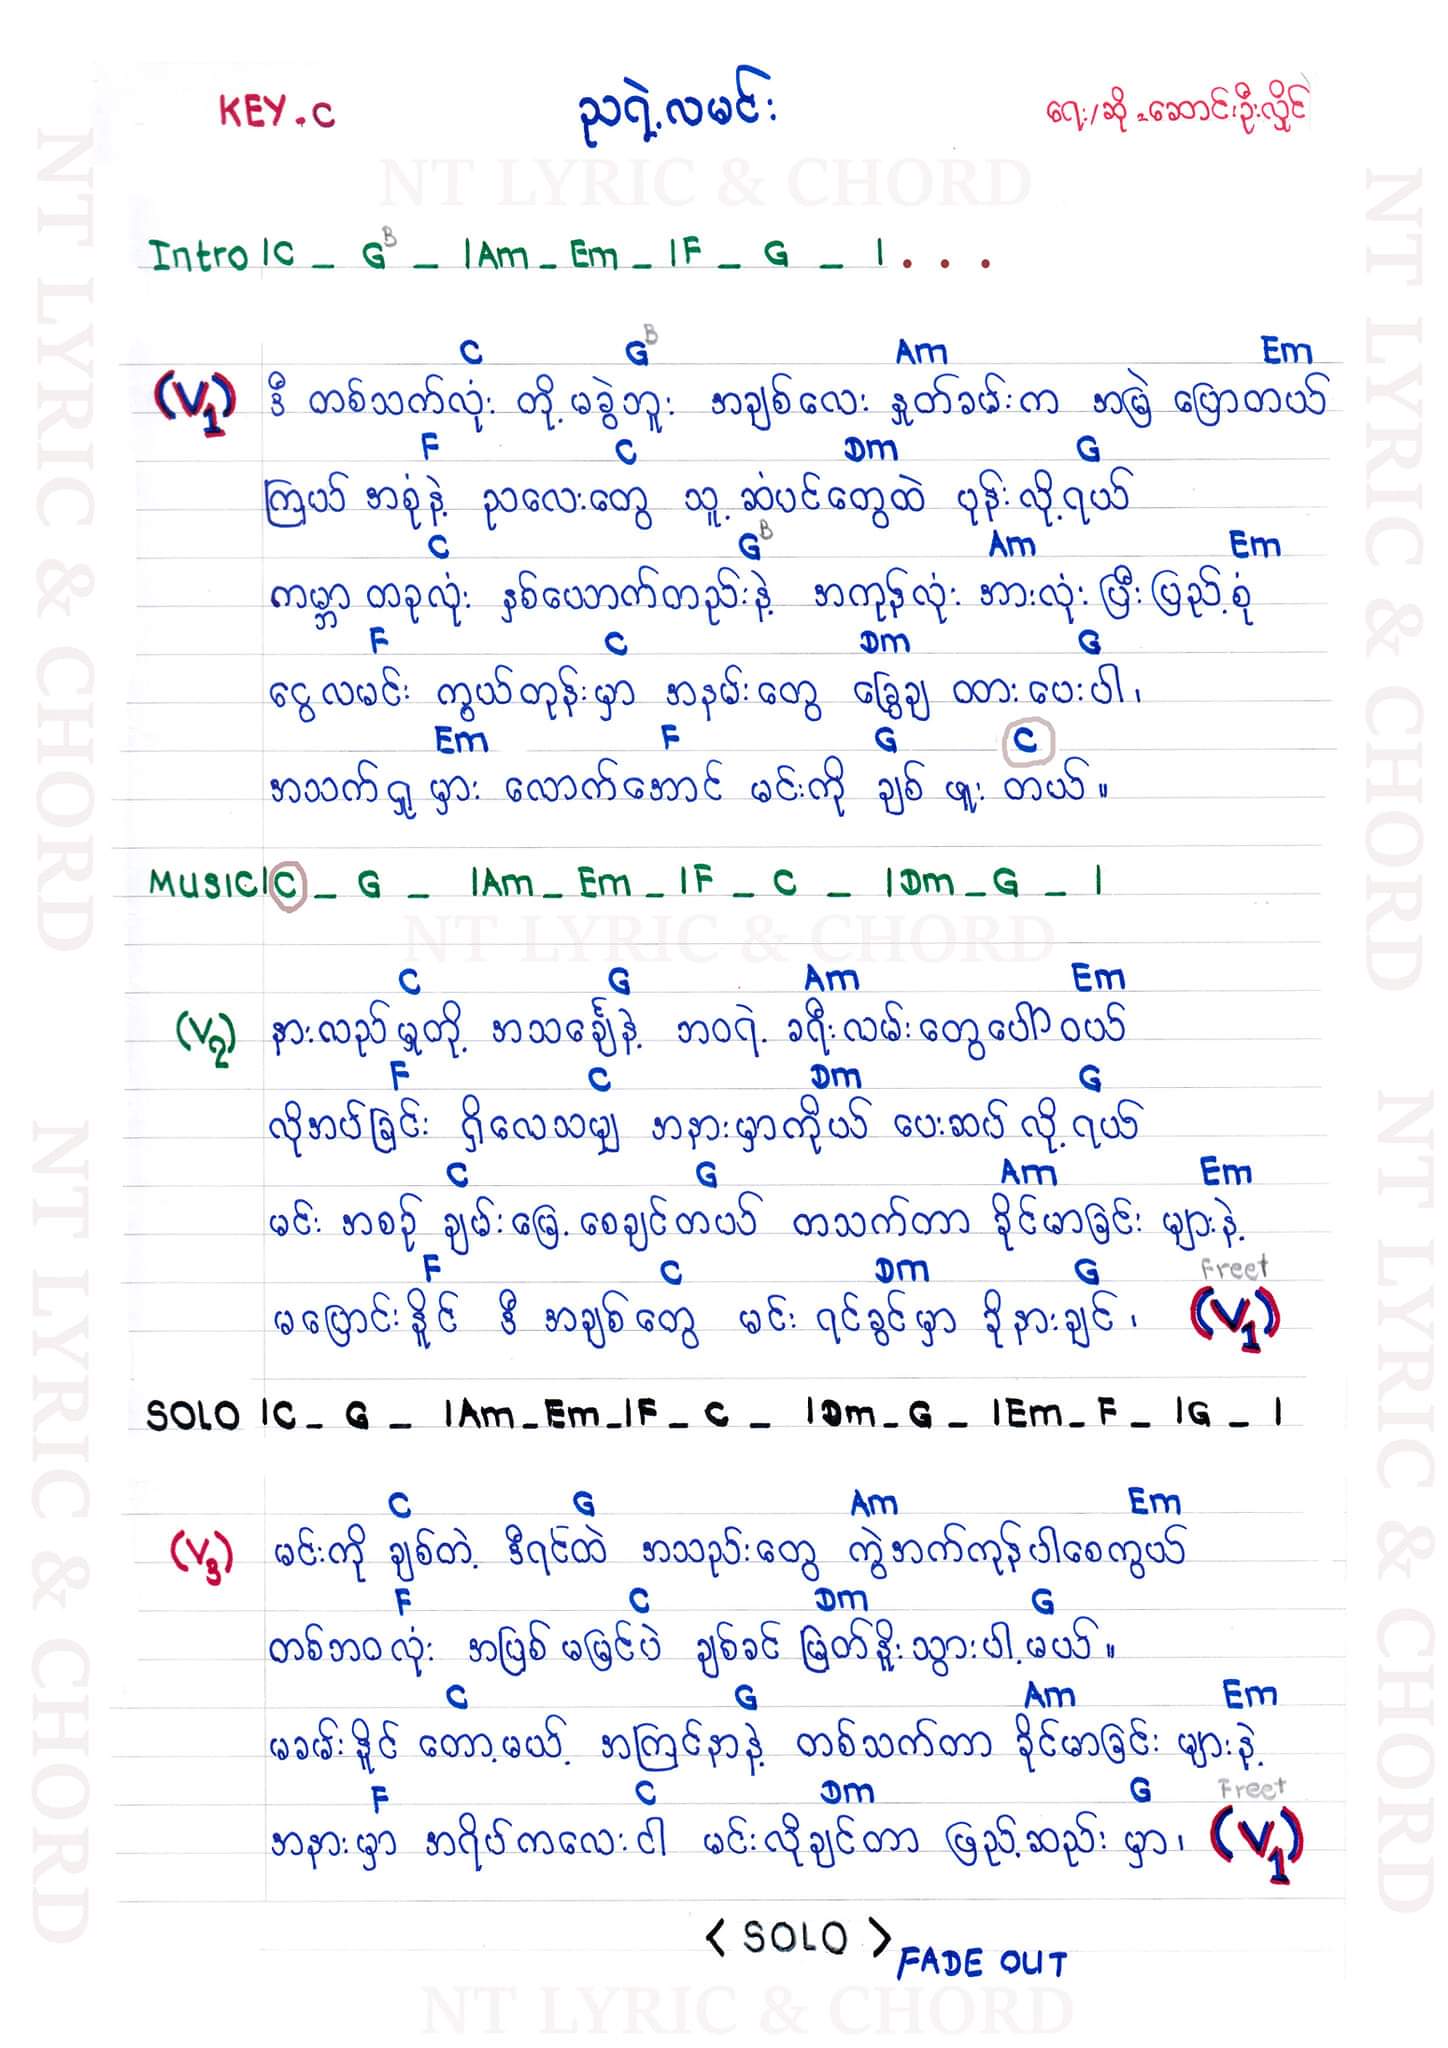 KEY.C ညရဲ့လမင်း ရေး/ဆို - ဆောင်းဦးလှိုင်
NT LYRIC & CHORD
Intro |C _ G B _ |Am _ Em _ |F _ G _ | . . .
C G B Am Em
(V1) ဒီ တစ်သက်လုံး တို့မခွဲဘူး အချစ်လေး နှုတ်ခမ်းက အမြဲ ပြောတယ်
F C Dm G
ကြယ် အစုံနဲ့ ညလေးတွေ သူ့ ဆံပင်တွေထဲ ပုန်းလို့ရယ်
C G B Am Em
ကမ္ဘာ တခုလုံး နှစ်ယောက်တည်းနဲ့ အကုန်လုံး အားလုံး ပြီးပြည့်စုံ
F C Dm G
ငွေလမင်း ကွယ်တုန်းမှာ အနမ်းတွေ ခြွေချ ထားပေးပါ၊
Em F G C
အသက်ရှု မှား လောက်အောင် မင်းကို ချစ် ဖူး တယ်။
MUSIC |C _ G _ |Am _ Em _ |F _ C _ |Dm _ G _ |
NT LYRIC & CHORD
C G Am Em
(V2) နားလည်မှုတို့ အသင်္ချေနဲ့ ဘဝရဲ့ ခရီးလမ်းတွေပေါ်ဝယ်
F C Dm G
လိုအပ်ခြင်း ရှိလေသမျှ အနားမှာကိုယ် ပေးဆပ်လို့ရယ်
C G Am Em
မင်း အစဉ် ချမ်းမြေ့စေချင်တယ် တသက်တာ ခိုင်မာခြင်း များနဲ့
F C Dm G Freet
မပြောင်းနိူင် ဒီ အချစ်တွေ မင်း ရင်ခွင်မှာ ခိုနားချင်၊ (V1)
SOLO |C _ G _ |Am _ Em _ |F _ C _ |Dm _ G _ |Em _ F _ |G _ |
C G Am Em
(V3) မင်းကို ချစ်တဲ့ ဒီရင်ထဲ အသည်းတွေ ကွဲအက်ကုန်ပါစေကွယ်
F C Dm G
တစ်ဘဝလုံး အပြစ်မမြင်ပဲ ချစ်ခင် မြတ်နိူးသွားပါ့မယ်။
C G Am Em
မခမ်းနိူင် တော့မယ့် အကြင်နာနဲ့ တစ်သက်တာ ခိုင်မာခြင်း များနဲ့
F C Dm G Freet
အနားမှာ အရိပ်ကလေးငါ မင်းလိုချင်တာ ဖြည့်ဆည်းမှာ၊ (V1)
< SOLO > FADE OUT
NT LYRIC & CHORD
NT LYRIC & CHORD
NT LYRIC & CHORD
NT LYRIC & CHORD
NT LYRIC & CHORD